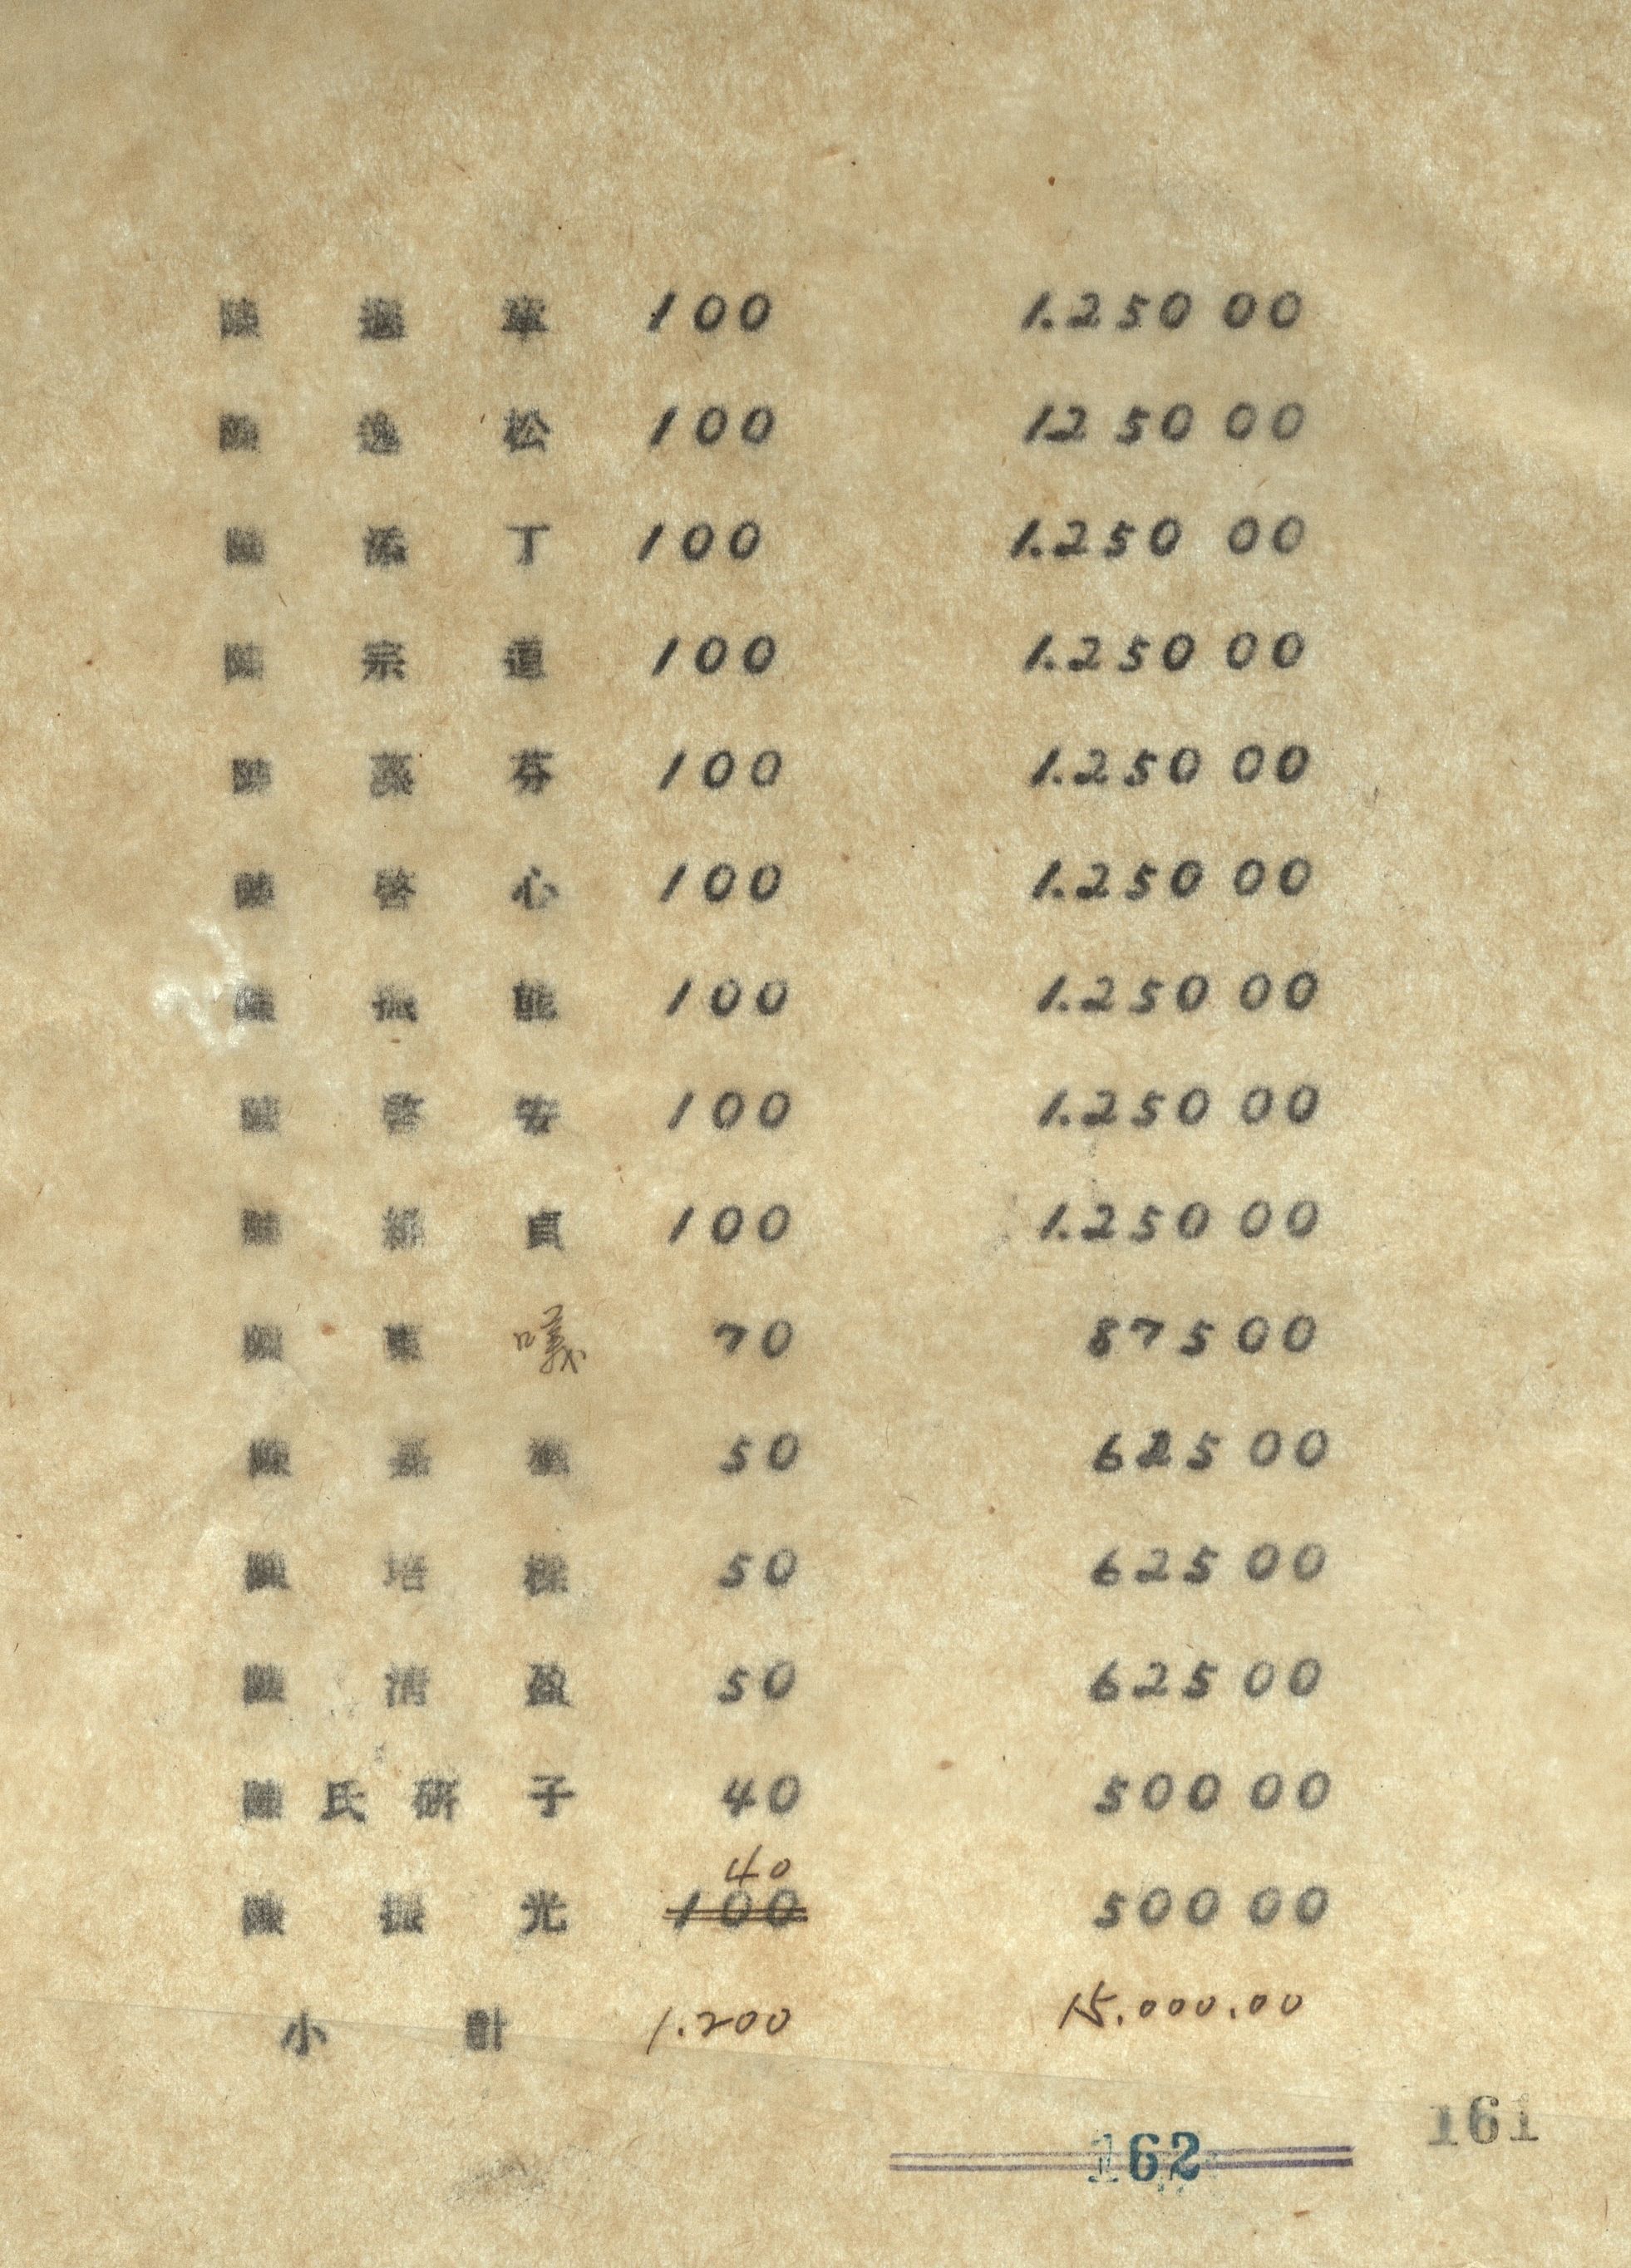 陳 逸 100 1.250 00
陳 逸 松 100 1250 00
陳 添 丁 100 1.250 00
陳 宗 道 100 1.250 00
陳 芬 100 1.250 00
陳 啓 心 100 1.250 00
陳 振 能 100 1.250 00
陳 啓 安 100 1.250 00
陳 貞 100 1.250 00
陳 東 曦 70 87500
陳 50 625 00
陳 培 50 625 00
陳 清 盈 50 625 00
陳 氏 研 子 40 500 00
40
陳 振 光 100 500 00
小 計 1.200 15.000.00
161
162